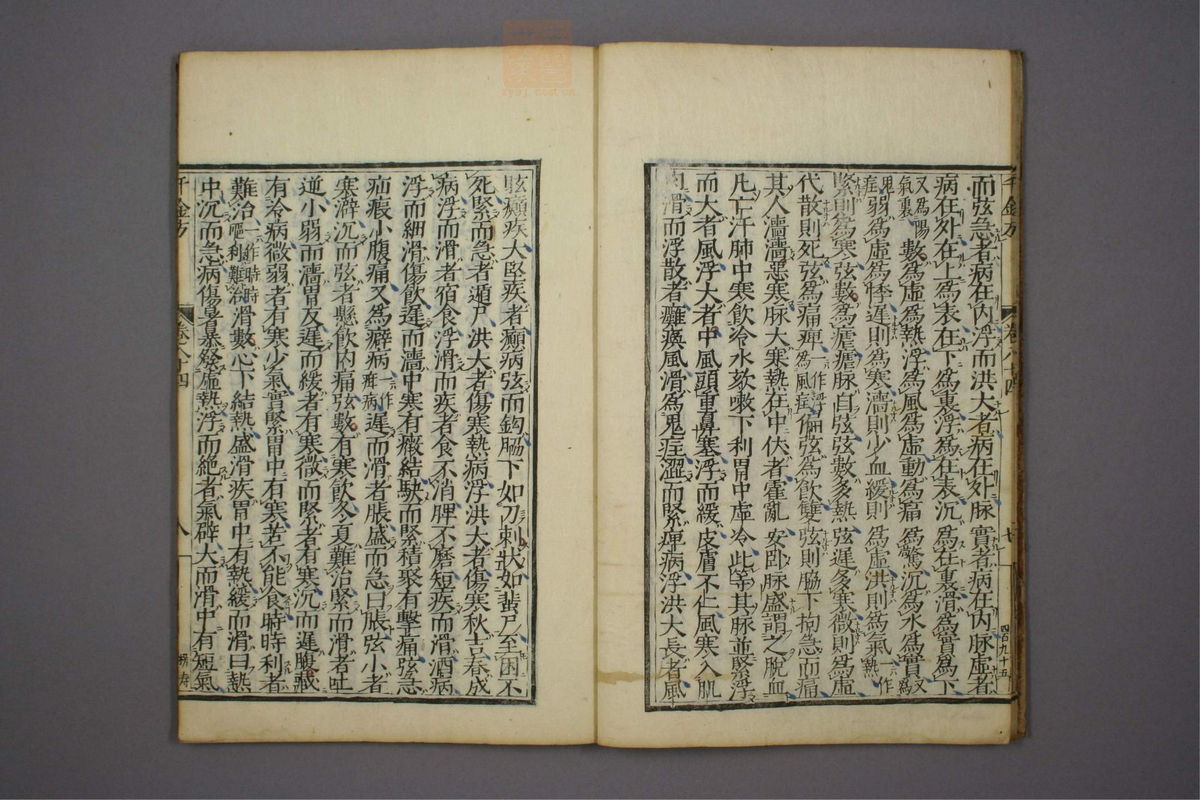 千金方
卷八十四
七
四百九十五
而弦急者病在內浮而洪大者病在外脉實者病在內脉虛者
病在外在上爲表在下爲裏浮爲在表沉爲在裏滑爲實爲下
又爲陽氣衰數爲虛爲熱浮爲風爲虛動爲痛爲驚沉爲水爲實又爲鬼
疰弱爲虛爲悸遲則爲寒濇則少血緩則爲虛洪則爲氣一作熱
緊則爲寒弦數爲瘧瘧脉自弦弦數多熱弦遲多寒微則爲虛
代散則死弦爲痛痺一作浮爲風疰偏弦爲飲雙弦則脇下拘急而痛
其人濇濇惡寒脉大寒熱在中伏者霍亂安卧脉盛謂之脫血
凡亡汗肺中寒飲冷水欬嗽下利胃中虛冷此等其脉並緊浮
而大者風浮大者中風頭重鼻塞浮而緩皮膚不仁風寒入肌
肉滑而浮散者癱瘓風滑爲鬼疰澀而緊痺病浮洪大長者風
眩癲疾大堅疾者癲病弦而鈎脇下如刀刺狀如蜚尸至困不
死緊而急者遁尸洪大者傷寒熱病浮洪大者傷寒秋吉春成
病浮而滑者宿食浮滑而疾者食不消脾不磨短疾而滑酒病
浮而細滑傷飲遲而濇中寒有癥結駃而緊積聚有擊痛弦急
疝瘕小腹痛又爲癖病一作痺病遲而滑者脹盛而急曰脹弦小者
寒澼沉而弦者懸飲內痛弦數有寒飲冬夏難治緊而滑者吐
逆小弱而濇胃反遲而緩者有寒微而緊者有寒沉而遲腹藏
有冷病微弱者有寒少氣實緊胃中有寒苦不能食時時利者
難治一作時時嘔利難治滑數心下結熱盛滑疾胃中有熱緩而滑曰熱
中沉而急病傷暑暴發虛熱浮而絕者氣辟大而滑中有短氣
千金方
卷八十四
八